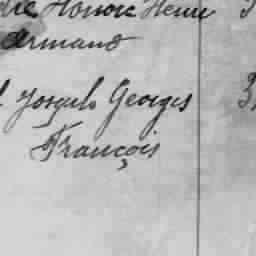 Honoré Henri
Armand
Joseph Georges
François